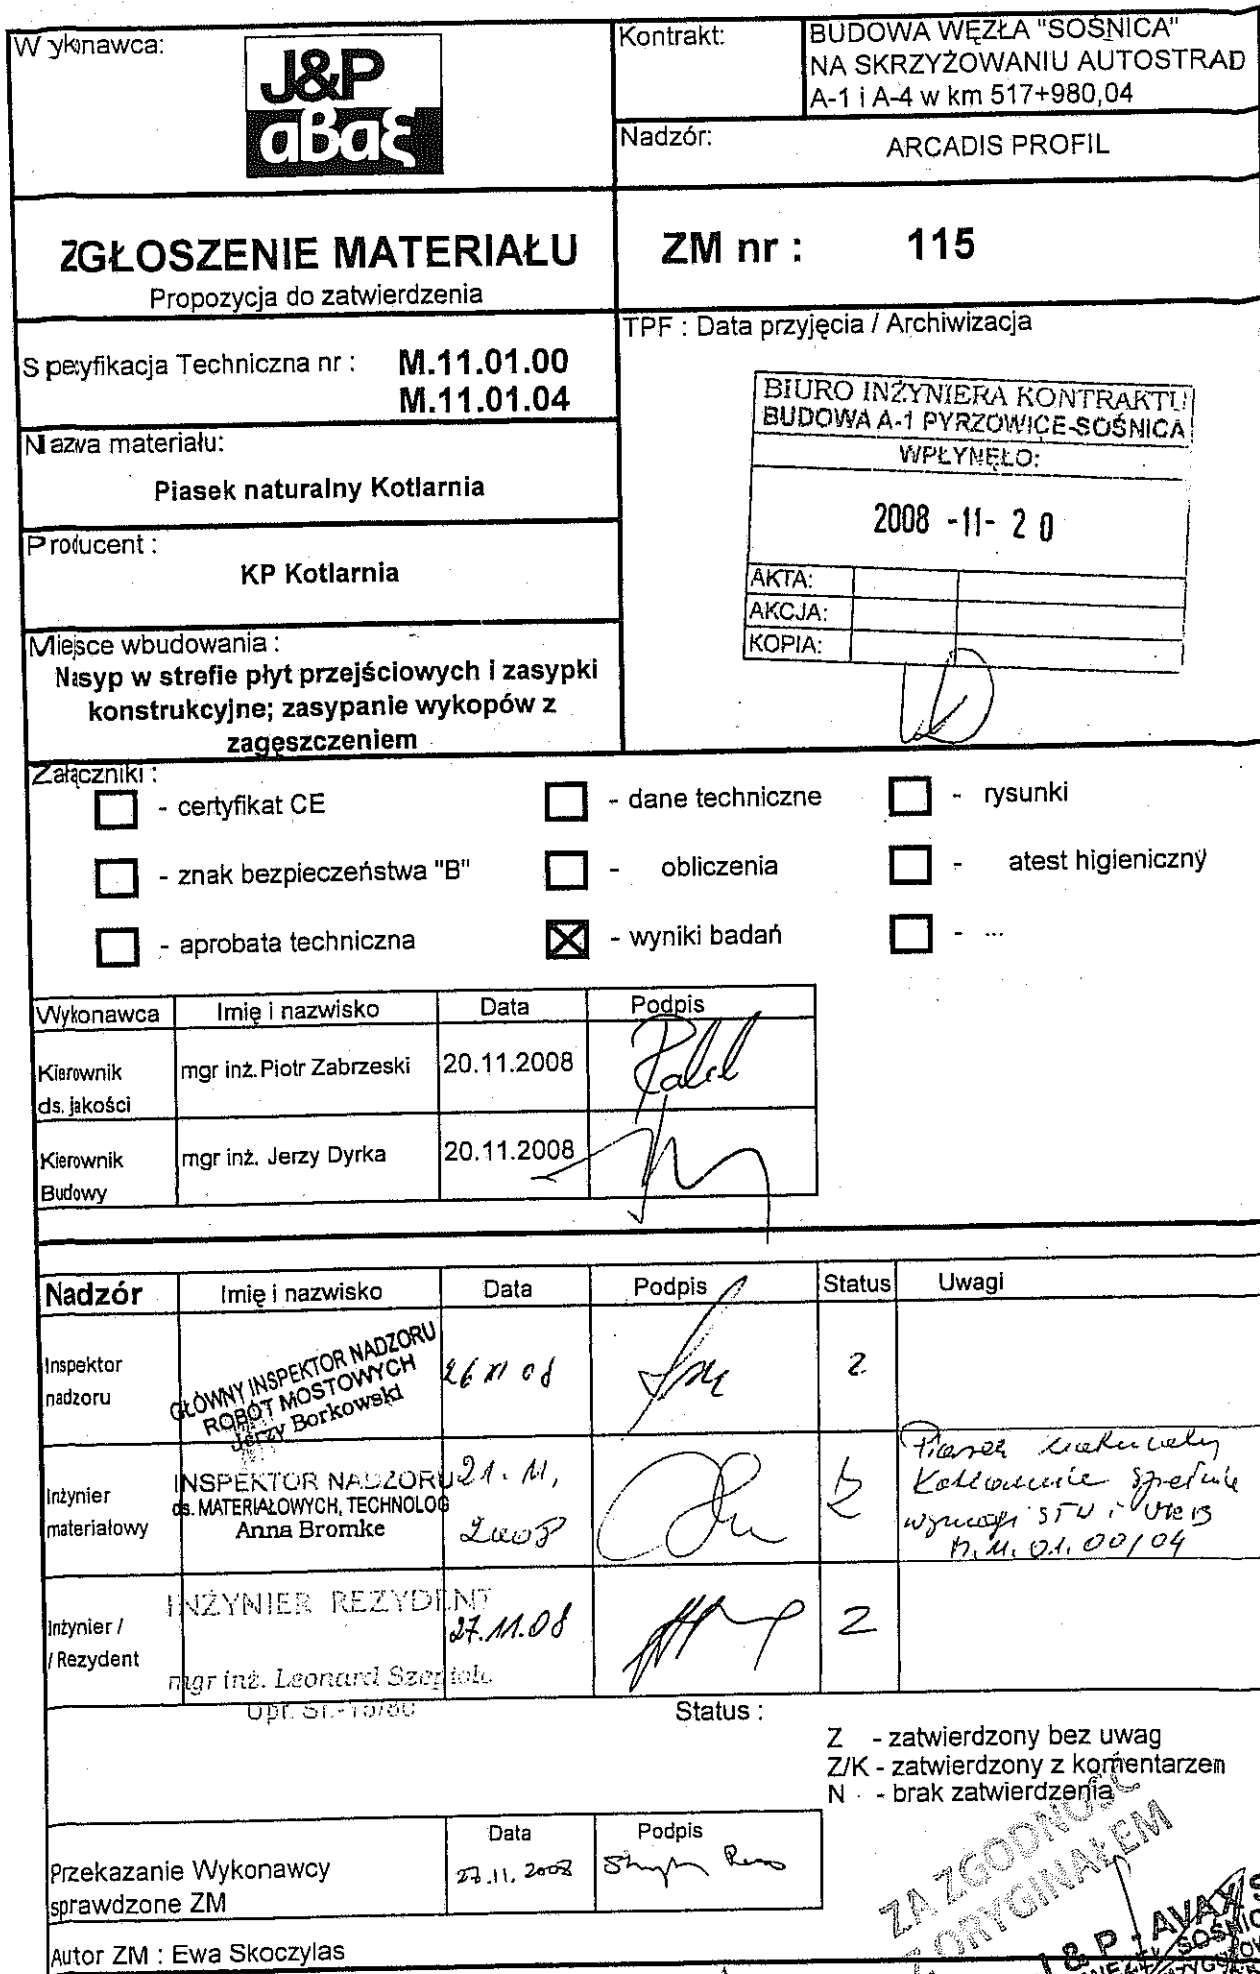 Wykonawca:
J&P
aBaξ
Kontrakt:
BUDOWA WĘZŁA "SOŚNICA"
NA SKRZYŻOWANIU AUTOSTRAD
A-1 i A-4 w km 517+980,04
Nadzór:
ARCADIS PROFIL
ZGŁOSZENIE MATERIAŁU
Propozycja do zatwierdzenia
ZM nr : 115
Specyfikacja Techniczna nr : M.11.01.00
M.11.01.04
TPF : Data przyjęcia / Archiwizacja
BIURO INŻYNIERA KONTRAKTU
BUDOWA A-1 PYRZOWICE-SOŚNICA
WPŁYNĘŁO:
2008 -11- 20
AKTA:
AKCJA:
KOPIA:
Nazwa materiału:
Piasek naturalny Kotlarnia
Producent :
KP Kotlarnia
Miejsce wbudowania :
Nasyp w strefie płyt przejściowych i zasypki
konstrukcyjne; zasypanie wykopów z
zagęszczeniem
Załączniki :
- certyfikat CE - dane techniczne - rysunki
- znak bezpieczeństwa "B" - obliczenia - atest higieniczny
- aprobata techniczna - wyniki badań - ...
Wykonawca Imię i nazwisko Data Podpis
Kierownik
ds. jakości
mgr inż. Piotr Zabrzeski 20.11.2008
Kierownik
Budowy
mgr inż. Jerzy Dyrka 20.11.2008
Nadzór Imię i nazwisko Data Podpis Status Uwagi
Inspektor
nadzoru
GŁÓWNY INSPEKTOR NADZORU
ROBÓT MOSTOWYCH
Jerzy Borkowski
26 XI 08
Z
Inżynier
materiałowy
INSPEKTOR NADZORU
ds. MATERIAŁOWYCH, TECHNOLOG
Anna Bromke
21.11.
2008
Z
Piasek naturalny
Kotlarnia spełnia
wymagi
M.11.01.00/04
Inżynier /
/ Rezydent
INŻYNIER REZYDENT
mgr inż. Leonard Szepioło
27.11.08
Z
Status :
Z - zatwierdzony bez uwag
Z/K - zatwierdzony z komentarzem
N - brak zatwierdzenia
Przekazanie Wykonawcy
sprawdzone ZM
Data Podpis
27.11.2008
ZA ZGODNOŚĆ
Z ORYGINAŁEM
J & P - AVAX S
Autor ZM : Ewa Skoczylas